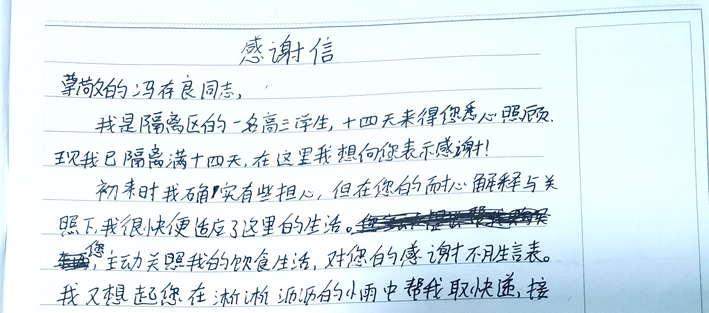 感谢信
尊敬的冯存良同志,
我是隔离区的一名高三学生,十四天来得您悉心照顾.
现我已隔离满十四天,在这里我想向您表示感谢!
初来时我确实有些担心,但在您的耐心解释与关
照下,我很快便适应了这里的生活。
您,主动关照我的饮食生活,对您的感谢不用言表。
我又想起您在淅淅沥沥的小雨中帮我取快递,接